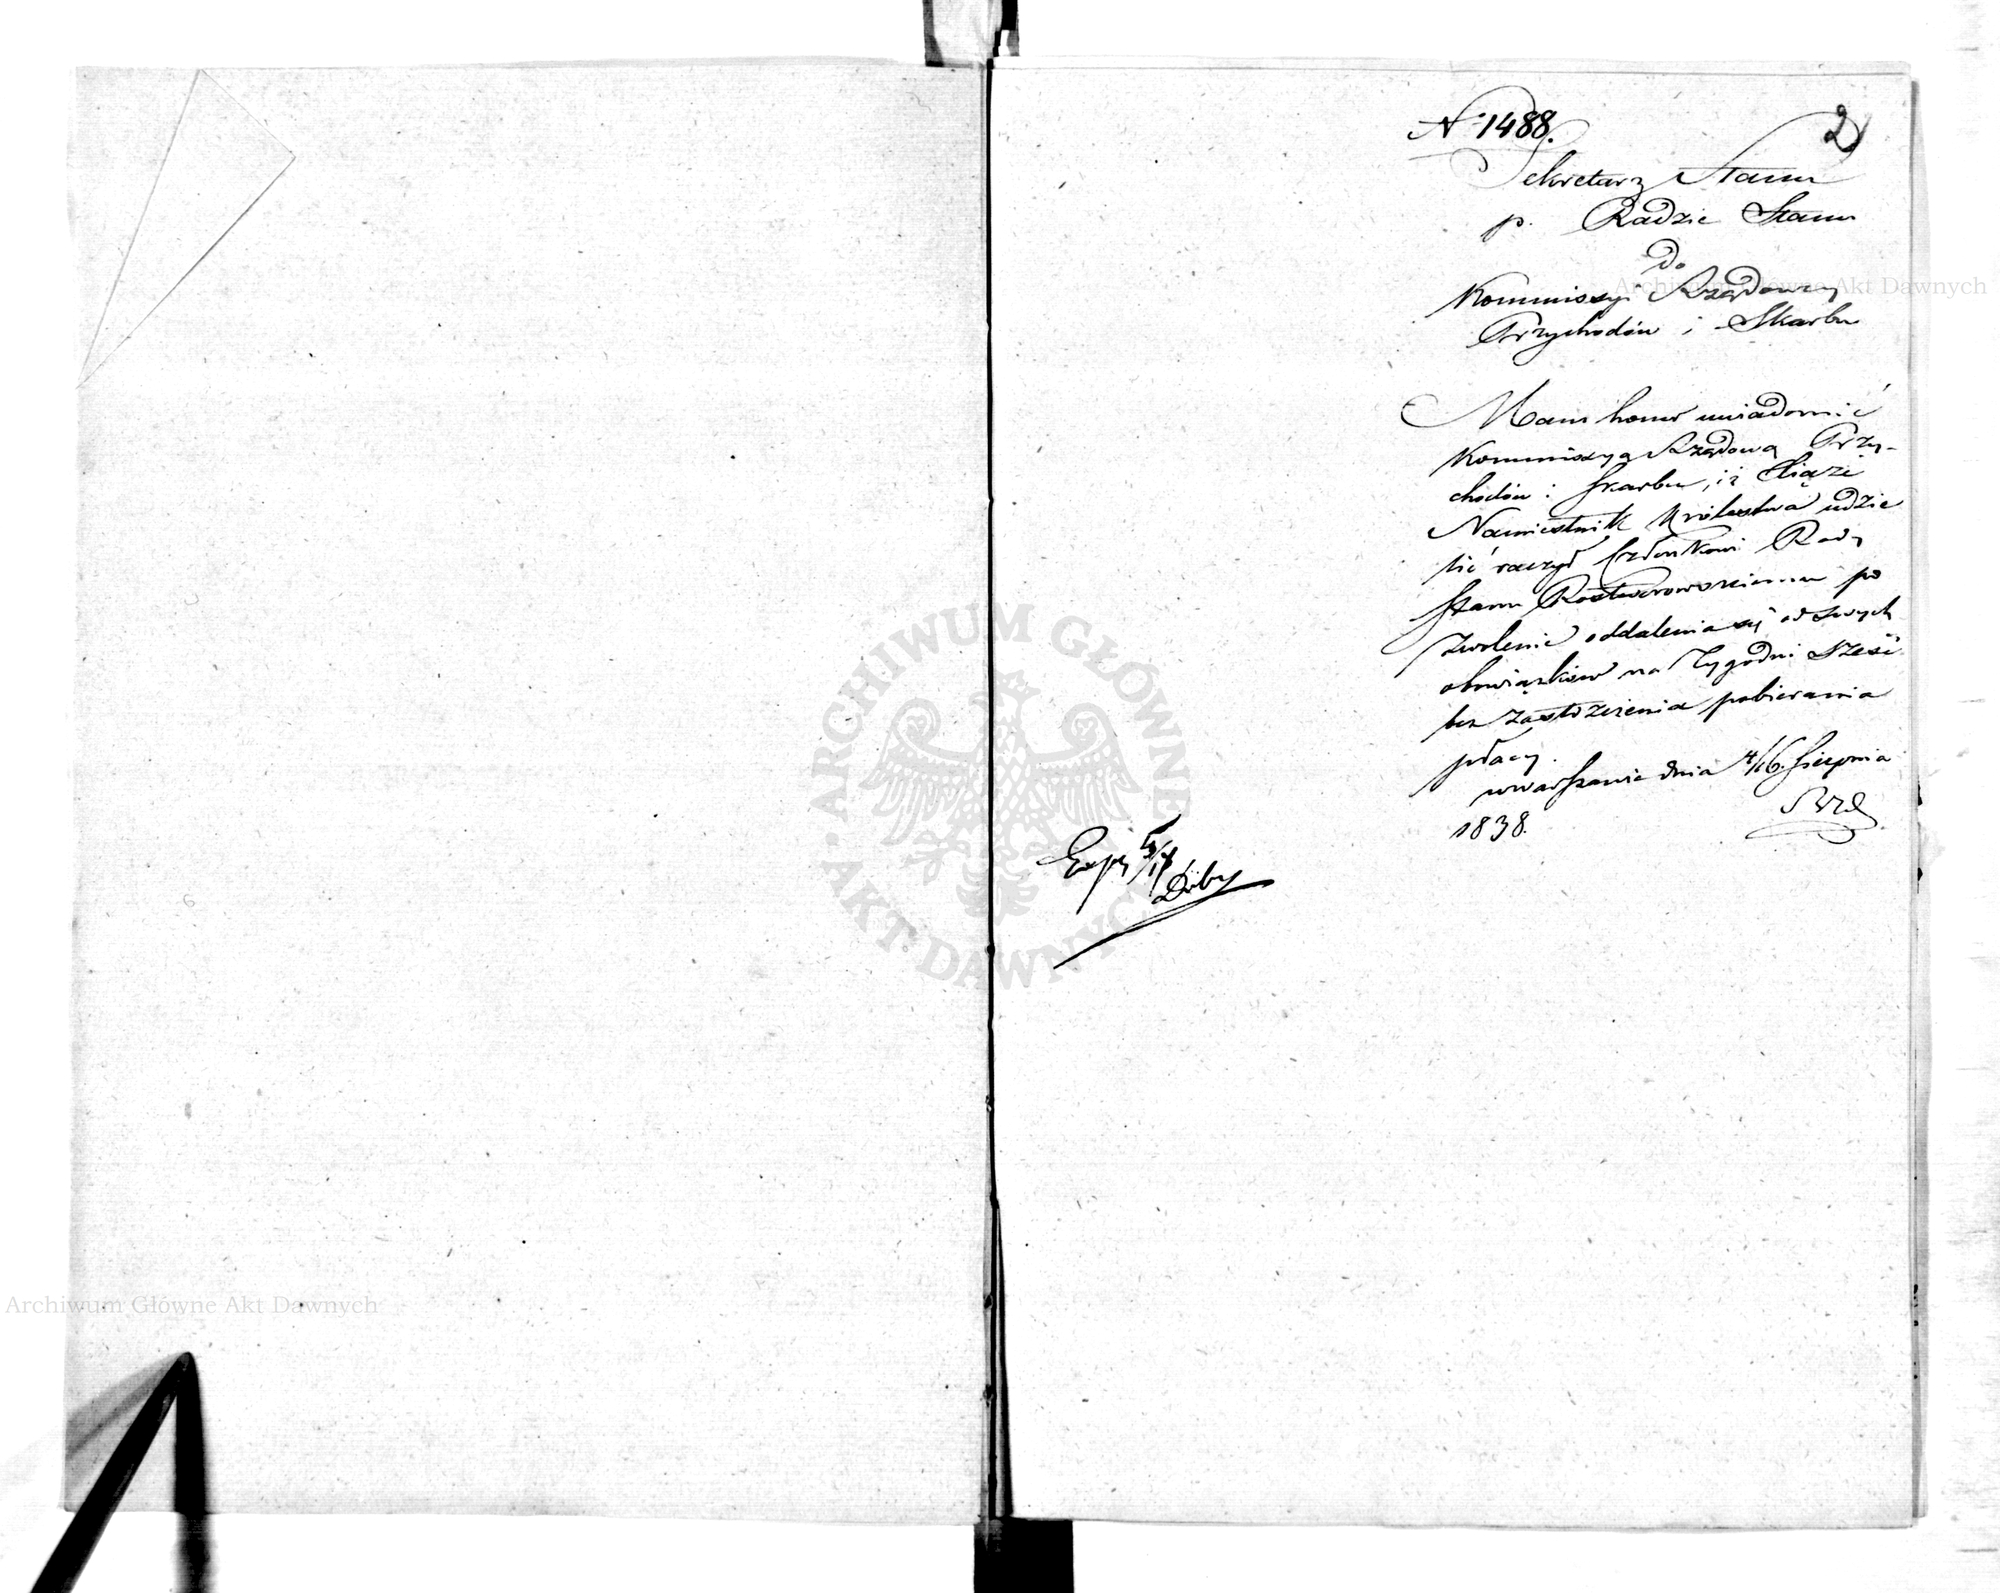 N 1488.
2
Sekretarz Stanu
p. Radzie Stanu
do
Kommissyi Rządowey
Przychodów i Skarbu
Mam honor uwiadomić
Kommissyą Rządową Przy-
chodów i Skarbu, iż Xiąże
Namiestnik Królestwa udzie
lić raczył Członkowi Rady
Stanu Rostworowskiemu po
zwolenie oddalenia się od swych
obowiązków na Tygodni sześć
bez zastrzeżenia pobierania
płacy.
w Warszawie dnia 4/16 Sierpnia
1838.
Exp
ARCHIWUM GŁÓWNE AKT DAWNYCH
Archiwum Główne Akt Dawnych
Archiwum Główne Akt Dawnych